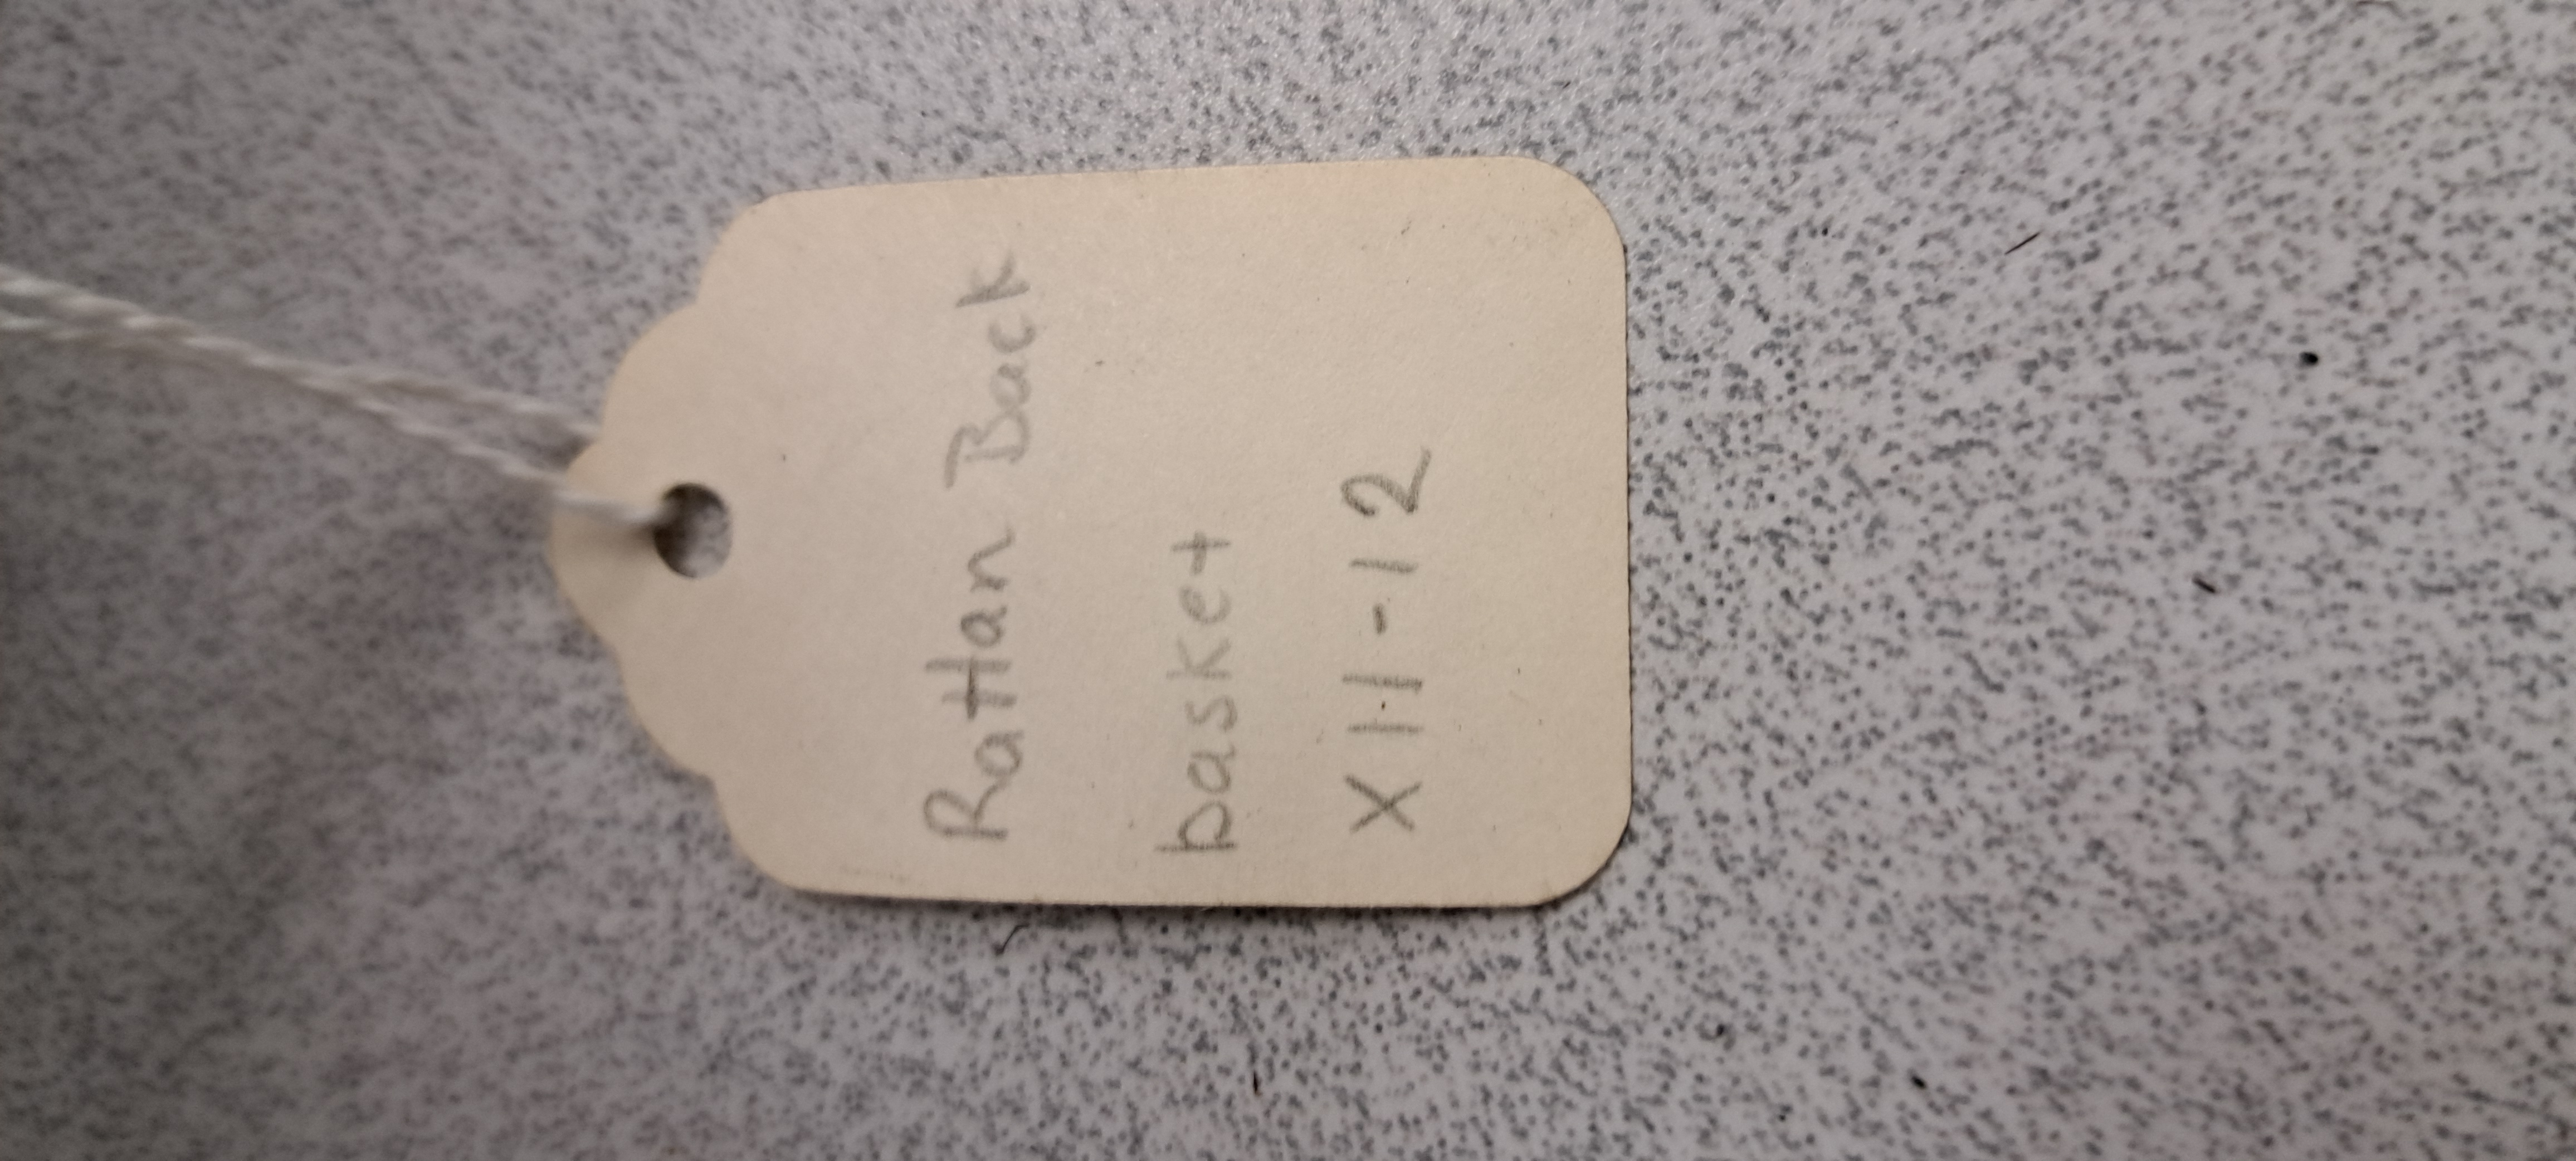 Rattan Back
basket
X11-12